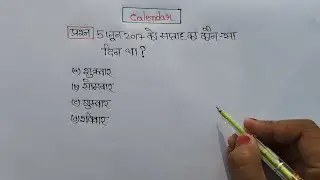 Calendar
प्रश्न 5 जून 2017 को सप्ताह का कौन-सा
दिन था?
(a) शुक्रवार
(b) सोमवार
(c) गुरुवार
(d) रविवार